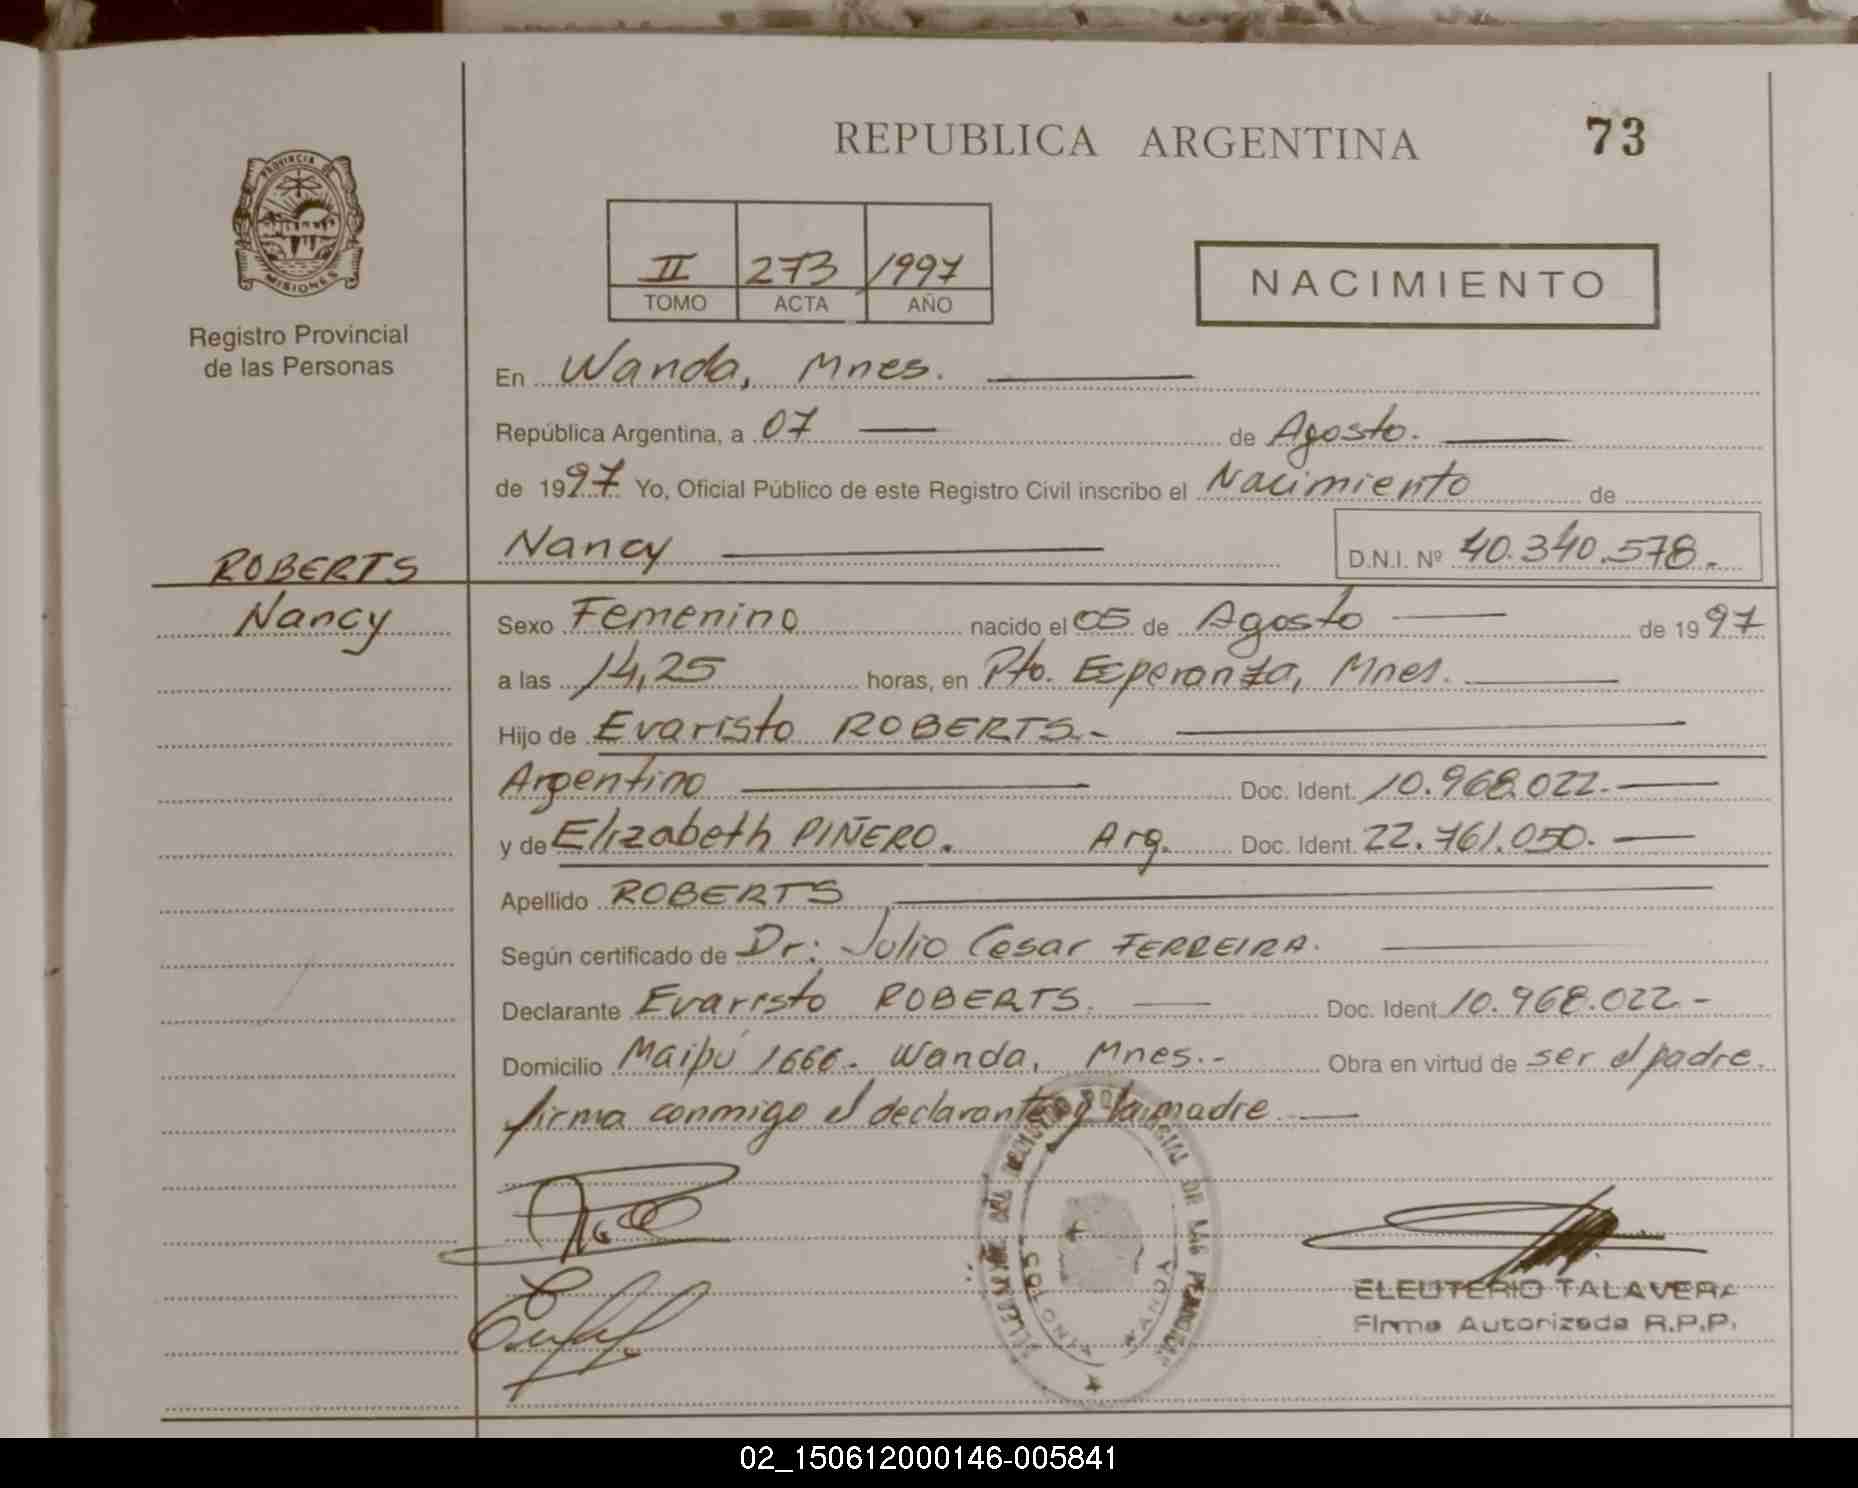 REPUBLICA ARGENTINA
73
PROVINCIA DE
MISIONES
Registro Provincial
de las Personas
II 273 1997
TOMO ACTA AÑO
NACIMIENTO
En Wanda, Mnes.
República Argentina, a 07 de Agosto.
de 1997 Yo, Oficial Público de este Registro Civil inscribo el Nacimiento de
Nancy D.N.I. Nº 40.340.578.
ROBERTS
Nancy
Sexo Femenino nacido el 05 de Agosto de 1997
a las 14,25 horas, en Pto. Esperanza, Mnes.
Hijo de Evaristo ROBERTS.-
Argentino Doc. Ident. 10.968.022.
y de Elizabeth PIÑERO. Arg. Doc. Ident. 22.761.050.
Apellido ROBERTS
Según certificado de Dr: Julio Cesar FERREIRA.
Declarante Evaristo ROBERTS. Doc. Ident 10.968.022.-
Domicilio Maipú 1666. Wanda, Mnes.- Obra en virtud de ser el padre.
firma conmigo el declarante y la madre
WANDA
ELEUTERIO TALAVERA
Firma Autorizada R.P.P.
02_150612000146-005841